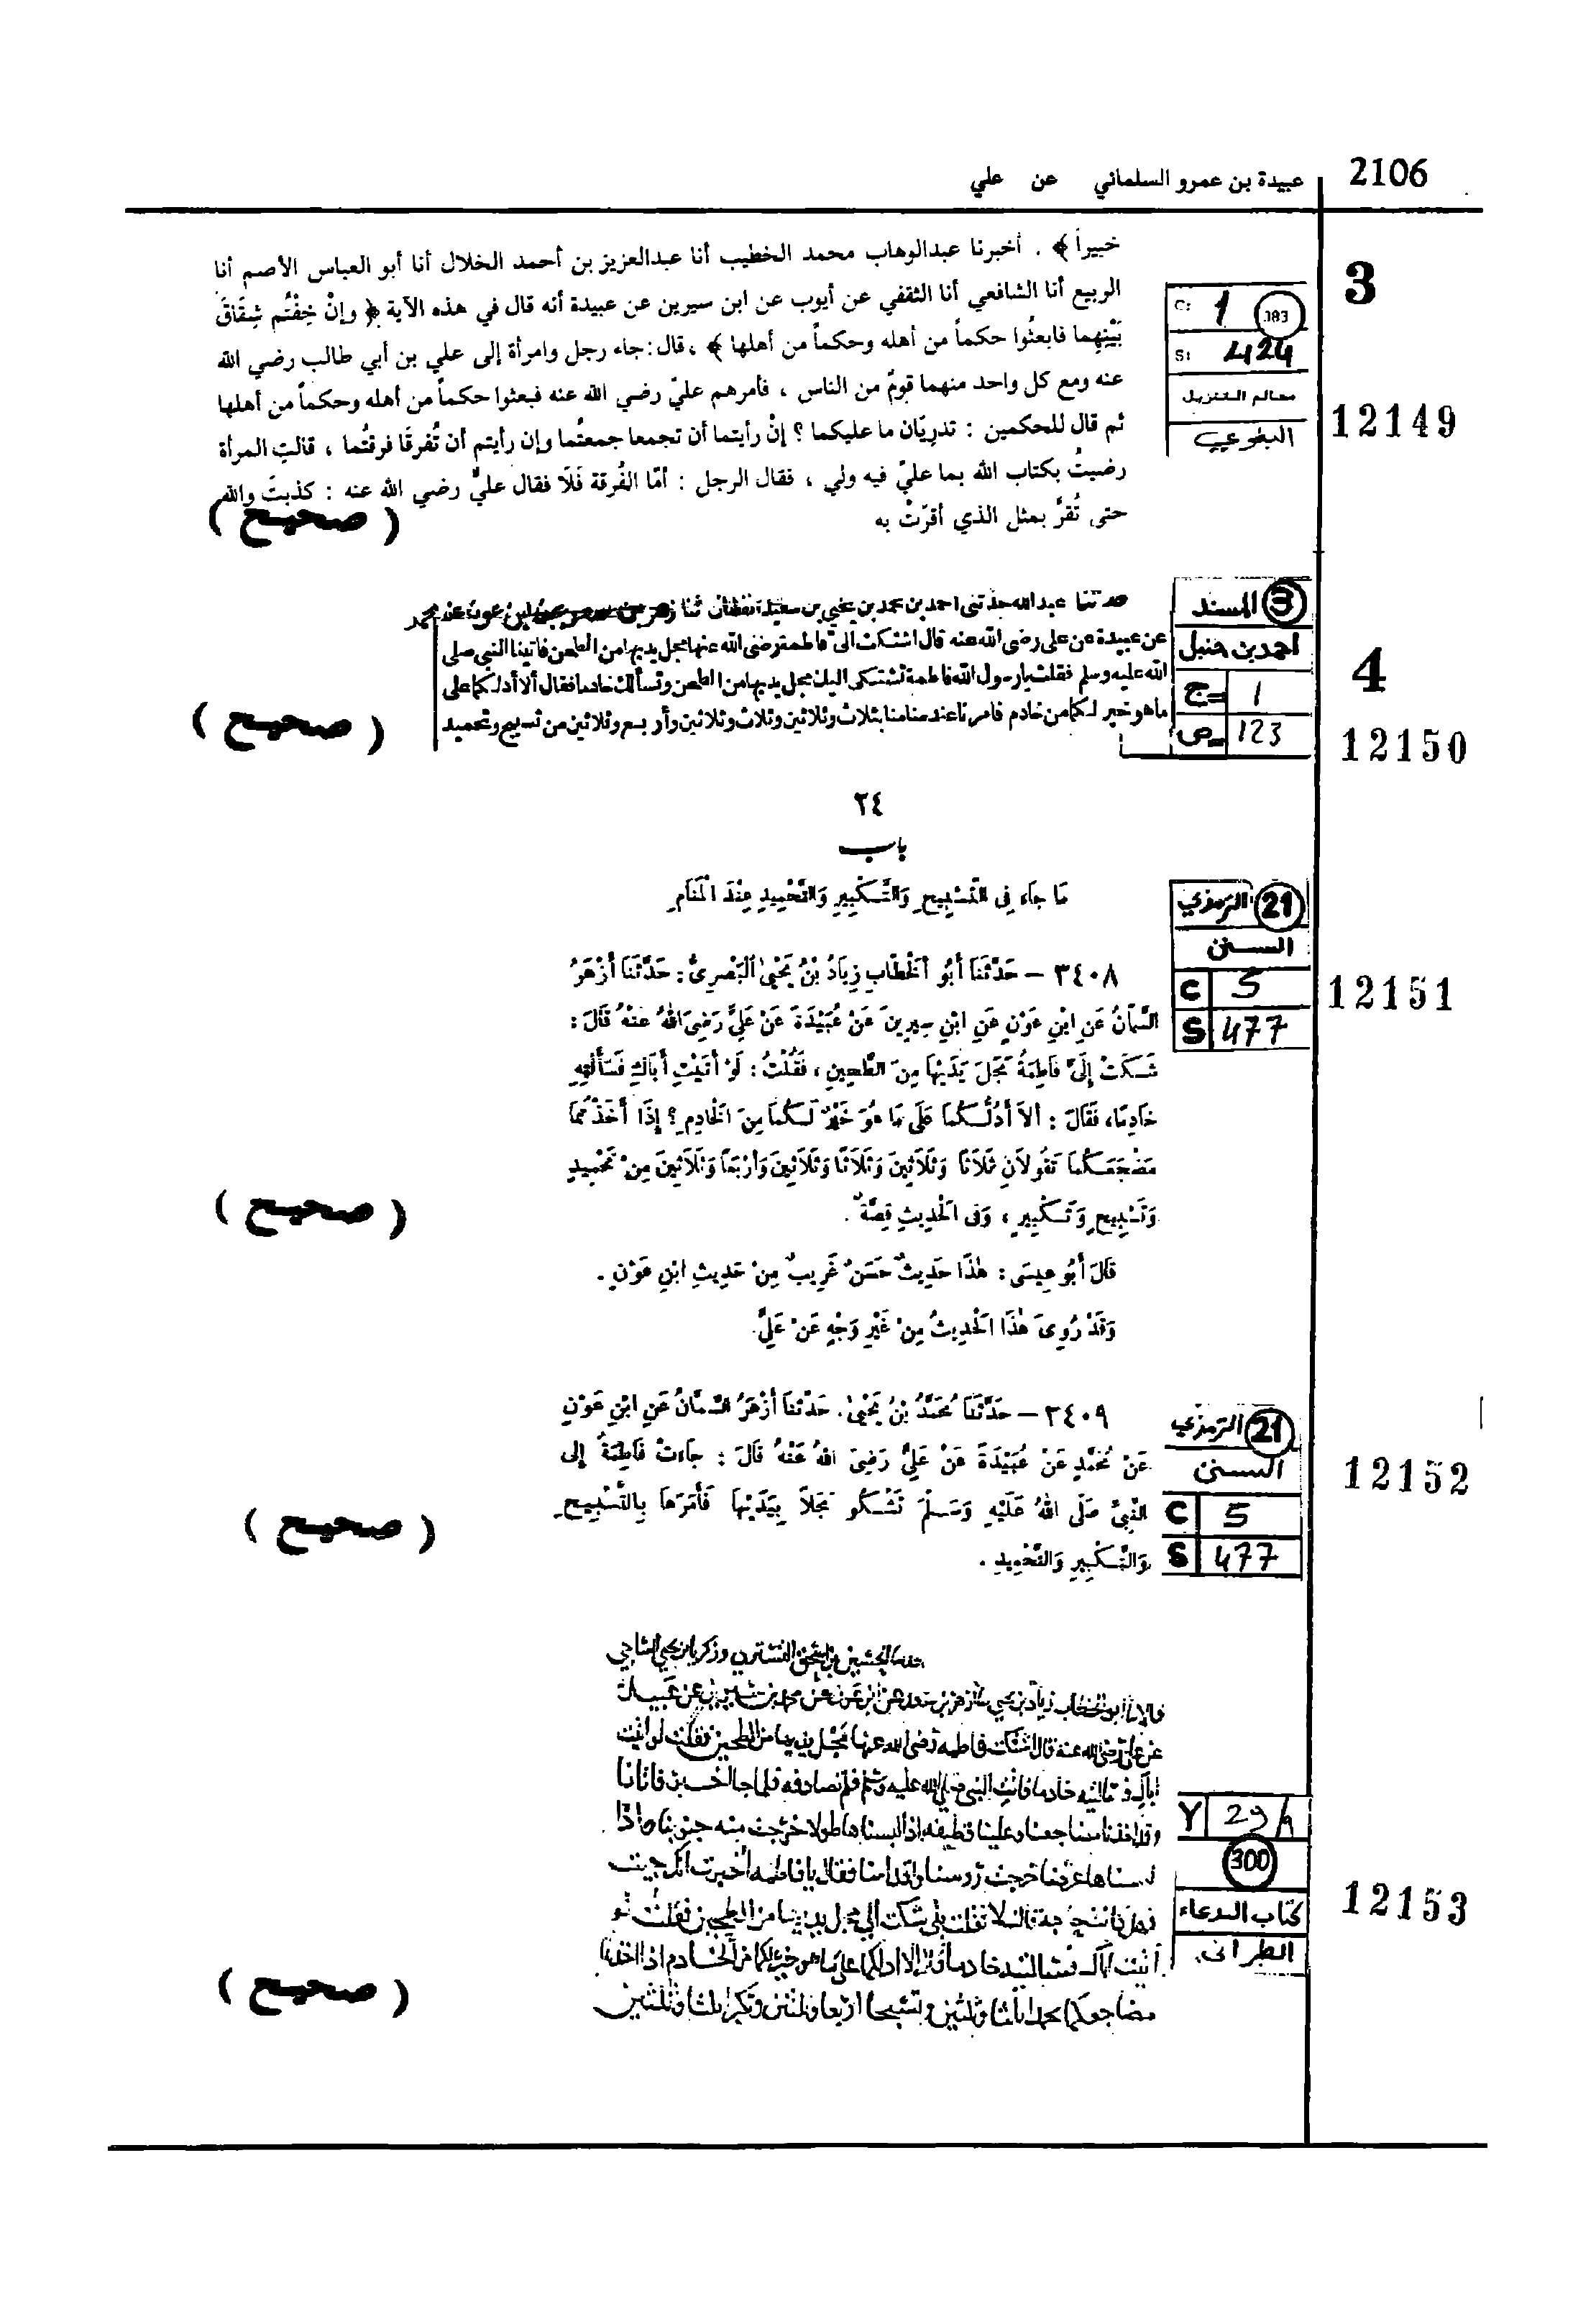 2106
عبيدة بن عمرو السلماني عن علي
خبيراً ﴾ . أخبرنا عبدالوهاب محمد الخطيب أنا عبدالعزيز بن أحمد الخلال أنا أبو العباس الأصم أنا
الربيع أنا الشافعي أنا الثقفي عن أيوب عن ابن سيرين عن عبيدة أنه قال في هذه الآية ﴿ وإنْ خِفْتُم شِقَاقَ
بَيْنِهِما فابعثُوا حكماً من أهله وحكماً من أهلها ﴾ ، قال: جاء رجل وامرأة إلى علي بن أبي طالب رضي الله
عنه ومع كل واحد منهما قومٌ من الناس ، فأمرهم عليّ رضي الله عنه فبعثوا حكماً من أهله وحكماً من أهلها
ثم قال للحكمين : تدريّان ما عليكما ؟ إنْ رأيتما أن تجمعا جمعتُما وإن رأيتم أن تُفرقَا فرقتُما ، قالتِ المرأة
رضيتُ بكتاب الله بما عليّ فيه ولي ، فقال الرجل : أمّا الفُرقة فَلَا فقال عليٌّ رضي الله عنه : كذبتَ والله
حتى تُقرَّ بمثل الذي أقرّتْ به
( صحيح )
3
C: 1 383
S: 424
معالم التنزيل
البغوي
12149
حدثنا عبد الله حدثنى احمد بن محمد بن يحيى بن سعيد القطان ثنا ابن عون عن محمد
عن عبيدة عن على رضى الله عنه قال اشتكت الى فاطمة رضى الله عنها مجل يديها من الطحن فاتينا النبي صلى
الله عليه وسلم فقلت يارسول الله فاطمة تشتكى اليك مجل يديها من الطحن وتسألك خادما فقال ألا أدلكما على
ما هو خير لكما من خادم فامرنا عند منامنا بثلاث وثلاثين وثلاث وثلاثين وأربع وثلاثين من تسبيح وتحميد
( صحيح )
3 المسند
احمد بن حنبل
ج 1
ص 123
4
12150
٢٤
باب
مَا جَاءَ فِى التَّسْبِيحِ وَالتَّكْبِيرِ وَالتَّحْمِيدِ عِنْدَ الْمَنَامِ
٣٤٠٨ – حَدَّثَنَا أَبُو الْخَطَّابِ زِيَادُ بْنُ يَحْيَى الْبَصْرِىُّ : حَدَّثَنَا أَزْهَرُ
السَّمَّانُ عَنِ ابْنِ عَوْنٍ عَنِ ابْنِ سِيرِينَ عَنْ عُبَيْدَةَ عَنْ عَلِىٍّ رَضِىَ اللهُ عَنْهُ قَالَ :
شَكَتْ إِلَىَّ فَاطِمَةُ مَجَلَ يَدَيْهَا مِنَ الطَّحِينِ ، فَقُلْتُ : لَوْ أَتَيْتِ أَبَاكِ فَسَأَلْتِهِ
خَادِمًا، فَقَالَ : أَلاَ أَدُلُّكُمَا عَلَى مَا هُوَ خَيْرٌ لَكُمَا مِنَ الْخَادِمِ ؟ إِذَا أَخَذْتُمَا
مَضْجَعَكُمَا تَقُولاَنِ ثَلاَثًا وَثَلاَثِينَ وَثَلاَثًا وَثَلاَثِينَ وَأَرْبَعًا وَثَلاَثِينَ مِنْ تَحْمِيدٍ
وَتَسْبِيحٍ وَتَكْبِيرٍ ، وَفِى الْحَدِيثِ قِصَّةٌ .
( صحيح )
قَالَ أَبُو عِيسَى : هٰذَا حَدِيثٌ حَسَنٌ غَرِيبٌ مِنْ حَدِيثِ ابْنِ عَوْنٍ .
وَقَدْ رُوِىَ هٰذَا الْحَدِيثُ مِنْ غَيْرِ وَجْهٍ عَنْ عَلِىٍّ.
21 الترمذي
السنن
C 5
S 477
12151
٣٤٠٩ – حَدَّثَنَا مُحَمَّدُ بْنُ يَحْيَى. حَدَّثَنَا أَزْهَرُ السَّمَّانُ عَنِ ابْنِ عَوْنٍ
عَنْ مُحَمَّدٍ عَنْ عُبَيْدَةَ عَنْ عَلِىٍّ رَضِىَ اللهُ عَنْهُ قَالَ : جَاءَتْ فَاطِمَةُ إِلَى
النَّبِىِّ صَلَّى اللهُ عَلَيْهِ وَسَلَّمَ تَشْكُو مَجَلاً بِيَدَيْهَا فَأَمَرَهَا بِالتَّسْبِيحِ
وَالتَّكْبِيرِ وَالتَّحْمِيدِ .
( صحيح )
21 الترمذي
السنن
C 5
S 477
12152
حدثنا الحسين بن اسحق التستري وزكريا بن يحيى الساجي
قالا ثنا ابو الخطاب زياد بن يحيى ثنا ازهر بن سعد عن ابن عون عن محمد بن سيرين عن عبيدة
عن علي رضي الله عنه قال اشتكت فاطمه رضي الله عنها مجل يديها من الطحين فقلت لو اتيت
اباك فسالتيه خادما فاتت النبي صلى الله عليه وسلم فلم تصادفه فلما جا اخبر فاتانا
وقد اخذنا مضاجعنا وعلينا قطيفه اذا لبسناها طولا خرجت منه جنوبنا واذا
لبسناها عرضا خرجت رؤسنا واقدامنا فقال يا فاطمه أخبرت انك جيت
فهل كانت حاجة قالت لا فقلت بلى شكت الي مجل يديها من الطحين فقلت لو
أتيت اباك فسالتيه خادما قال الا ادلكما على ما هو خير لكما من الخادم اذا اخذتما
مضاجعكما
( صحيح )
Y 29/
300
كتاب الدعاء
الطبراني
12153